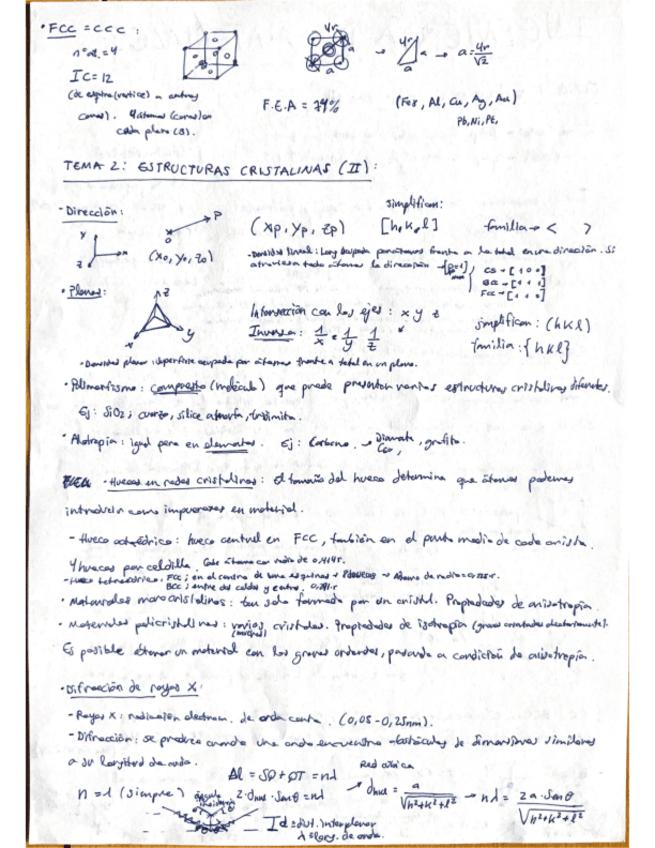 · FCC = CCC :
nº at. = 4
IC = 12
(de esquina (vertice) a centro
caras). 4 átomos (caras) en
cada plano (3).
4r
a
a
→
4r
a
a
→ a = 4r/√2
F.E.A = 74%
(Feγ, Al, Cu, Ag, Au)
Pb, Ni, Pt,
TEMA 2: ESTRUCTURAS CRISTALINAS (II):
· Dirección:
(x0, y0, z0)
(xp, yp, zp)
simplifican:
[h, k, l]
familia → < >
· Densidad lineal: Long ocupada por átomos frente a la total en una dirección. Si
atraviesa todo átomos la dirección
CS → [1 0 0]
BCC → [1 1 1]
· Planos:
z
y
x
Intersección con los ejes: x y z
Inversa: 1/x = 1/y 1/z
simplifican: (hkl)
familia: {hkl}
· Densidad planar: superficie ocupada por átomos frente a total en un plano.
· Polimorfismo: compuesto (molécula) que puede presentar varias estructuras cristalinas diferentes.
Ej: SiO2; cuarzo, sílice, tridimita.
· Alotropía: igual pero en elementos. Ej: Carbono. → Diamante, C60, grafito.
· Huecos en redes cristalinas: El tamaño del hueco determina que átomos podemos
introducir como impurezas en material.
- Hueco octaédrico: hueco central en FCC, también en el punto medio de cada arista.
4 huecos por celdilla. Cabe átomo con radio de 0,414r.
- Hueco tetraédrico. FCC; en el centro de una esquina → 8 huecos → Átomo de radio = 0,225r.
BCC; 0,291r
· Materiales monocristalinos: tan solo formado por un cristal. Propiedades de anisotropía.
· Materiales policristalinos: varios (muchos) cristales. Propiedades de isotropía (granos orientados aleatoriamente).
Es posible obtener un material con los granos ordenados, pasando a condición de anisotropía.
· Difracción de rayos X:
- Rayos X: radiación electrom. de onda corta. (0,05 - 0,25nm).
- Difracción: se produce cuando una onda encuentra obstáculos de dimensiones similares
a su longitud de onda.
Δl = SQ + QT = nλ
Red cúbica
n = 1 (siempre)
ángulo incidencia
2·dhkl·senθ = nλ
→ dhkl = a/√(h²+k²+l²) → nλ = 2a·senθ/√(h²+k²+l²)
d = dist. interplanar
λ = long. de onda.